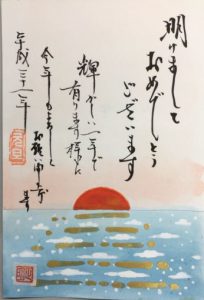 明けまして
おめでとう
ございます
輝かしい一年で
有ります様に
今年もよろしく
お願い申し上げ
ます
平成三十一年
元旦